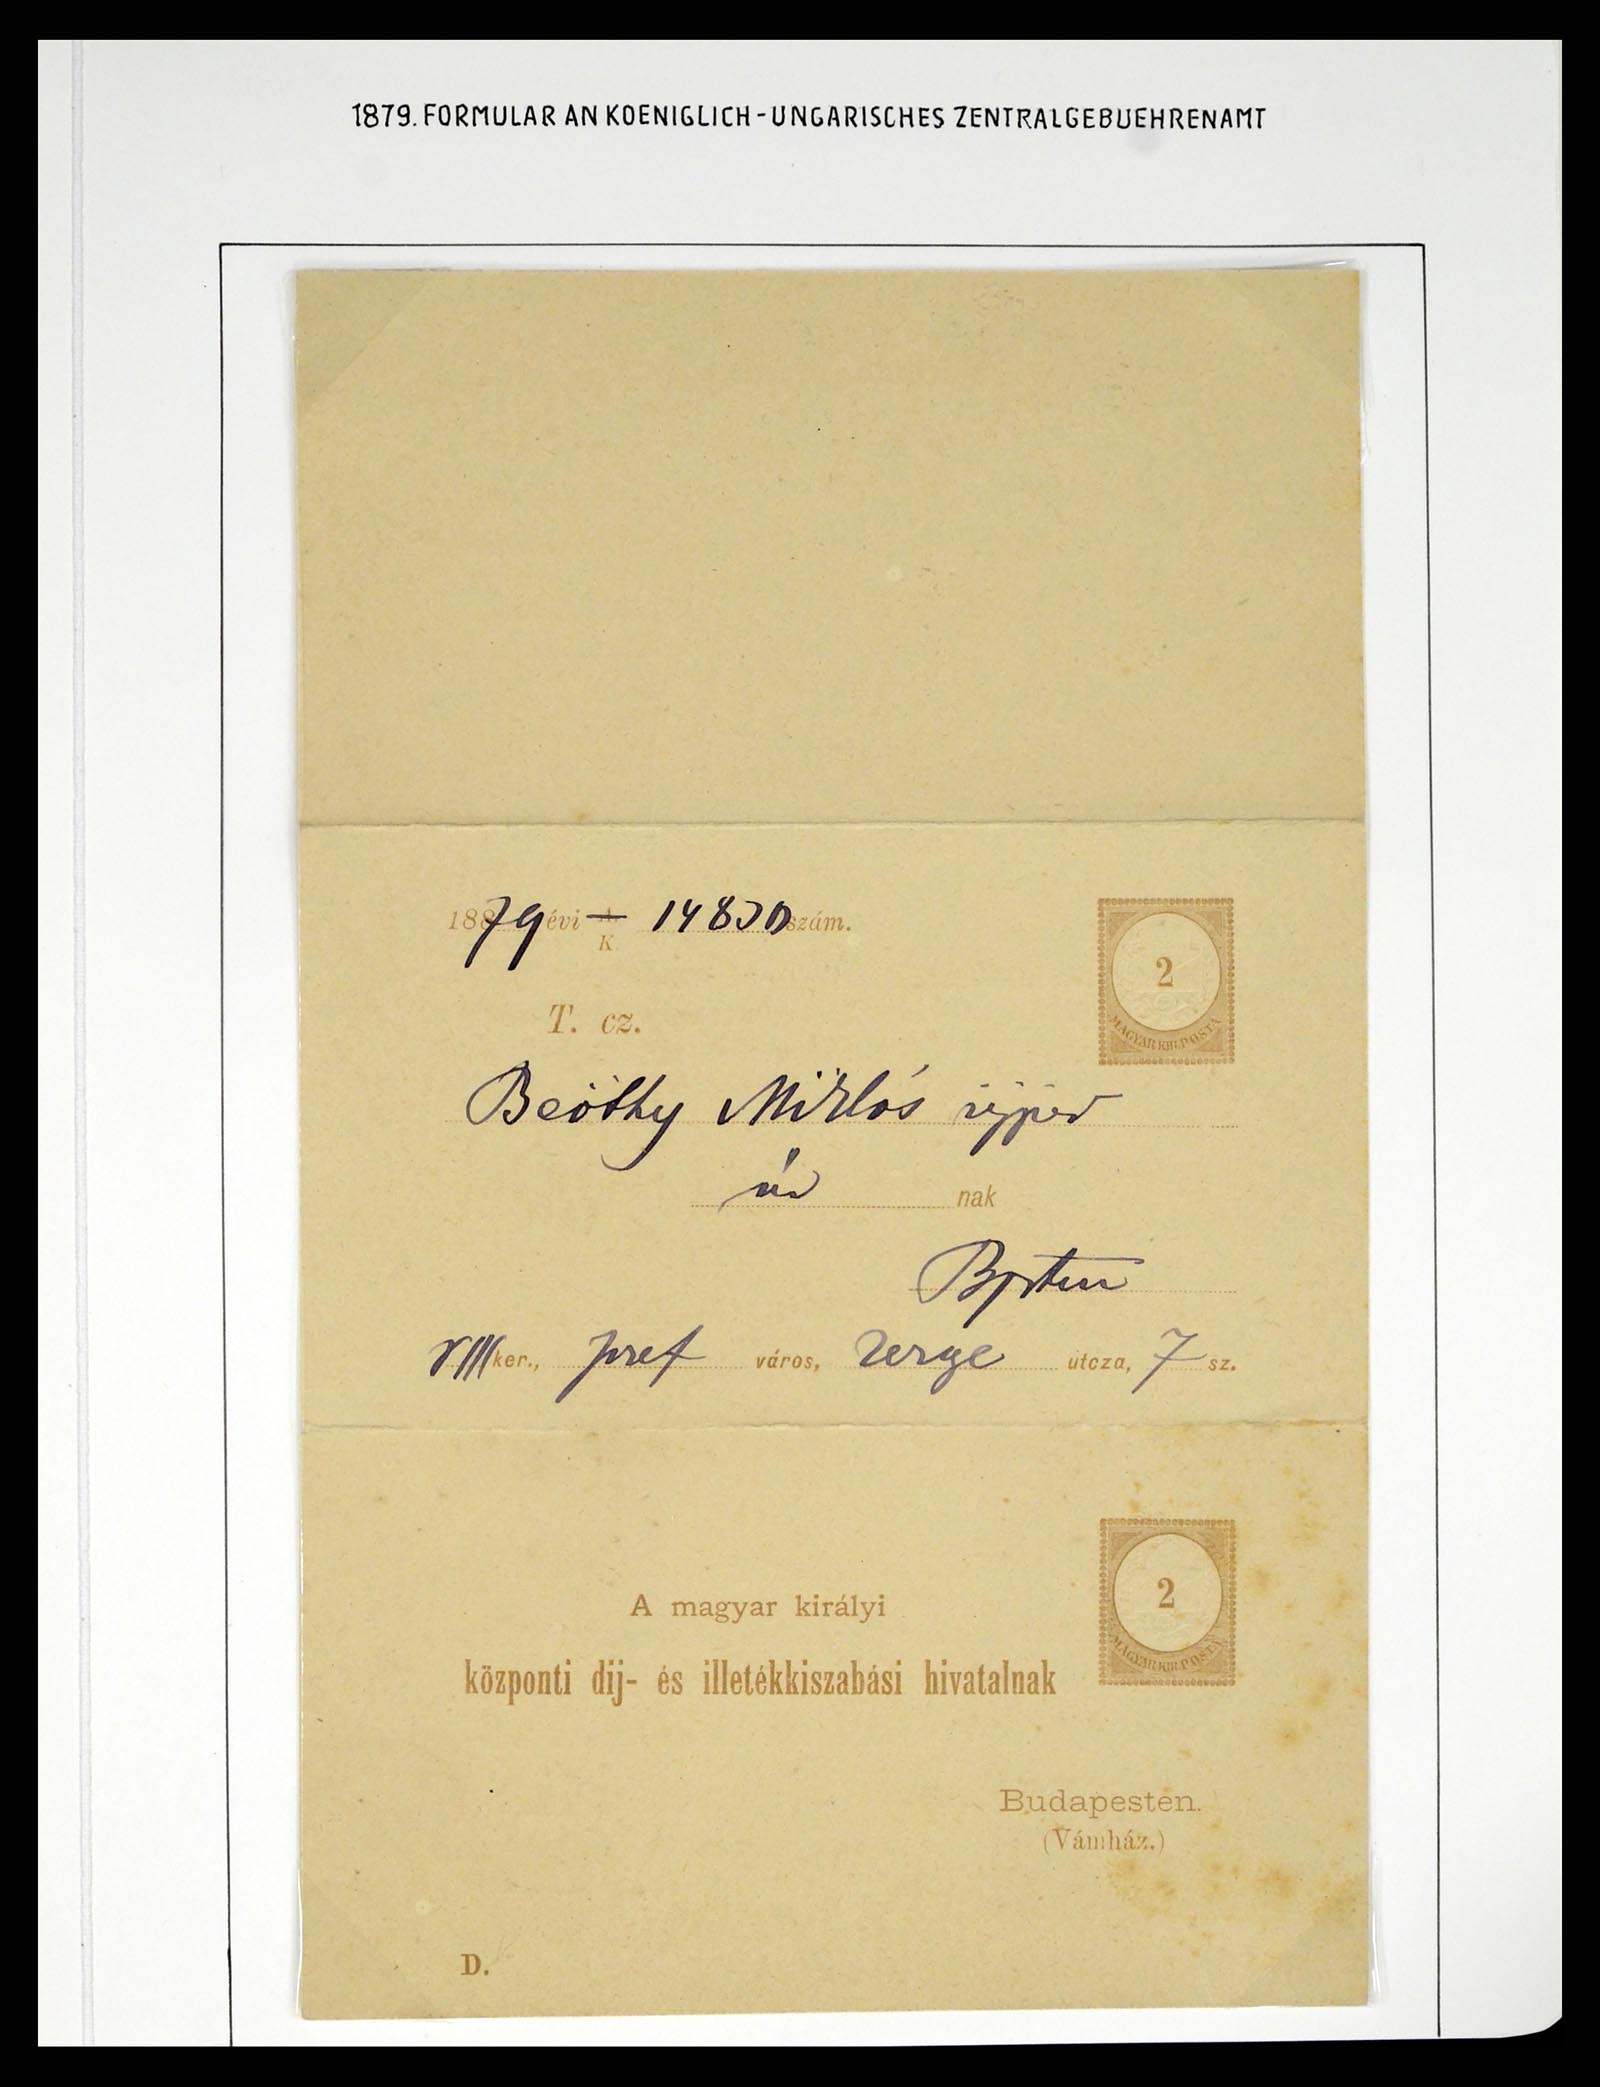 1879. FORMULAR AN KOENIGLICH-UNGARISCHES ZENTRALGEBUEHRENAMT
188 79 évi A/K szám.
2
MAGYAR KIR. POSTA
T. cz.
Beöthy Miklós
úr nak
Bpsten
VIII ker., Josef város, Zerge utcza, 7 sz.
2
MAGYAR KIR. POSTA
A magyar királyi
központi dij- és illetékkiszabási hivatalnak
Budapesten.
(Vámház.)
D.